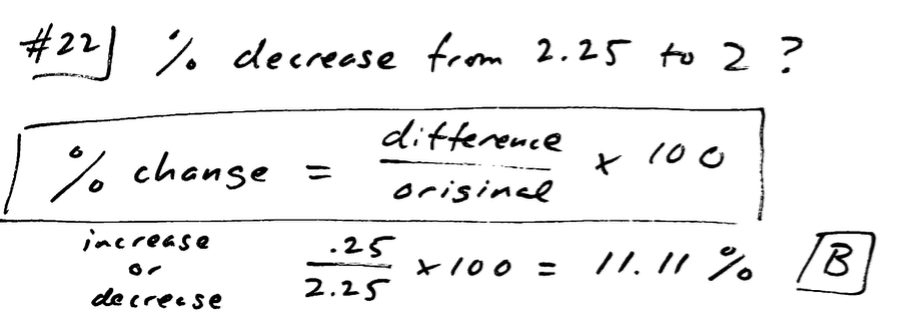 #22] % decrease from 2.25 to 2 ?
% change = difference/original × 100
increase or decrease
.25/2.25 × 100 = 11.11 % B